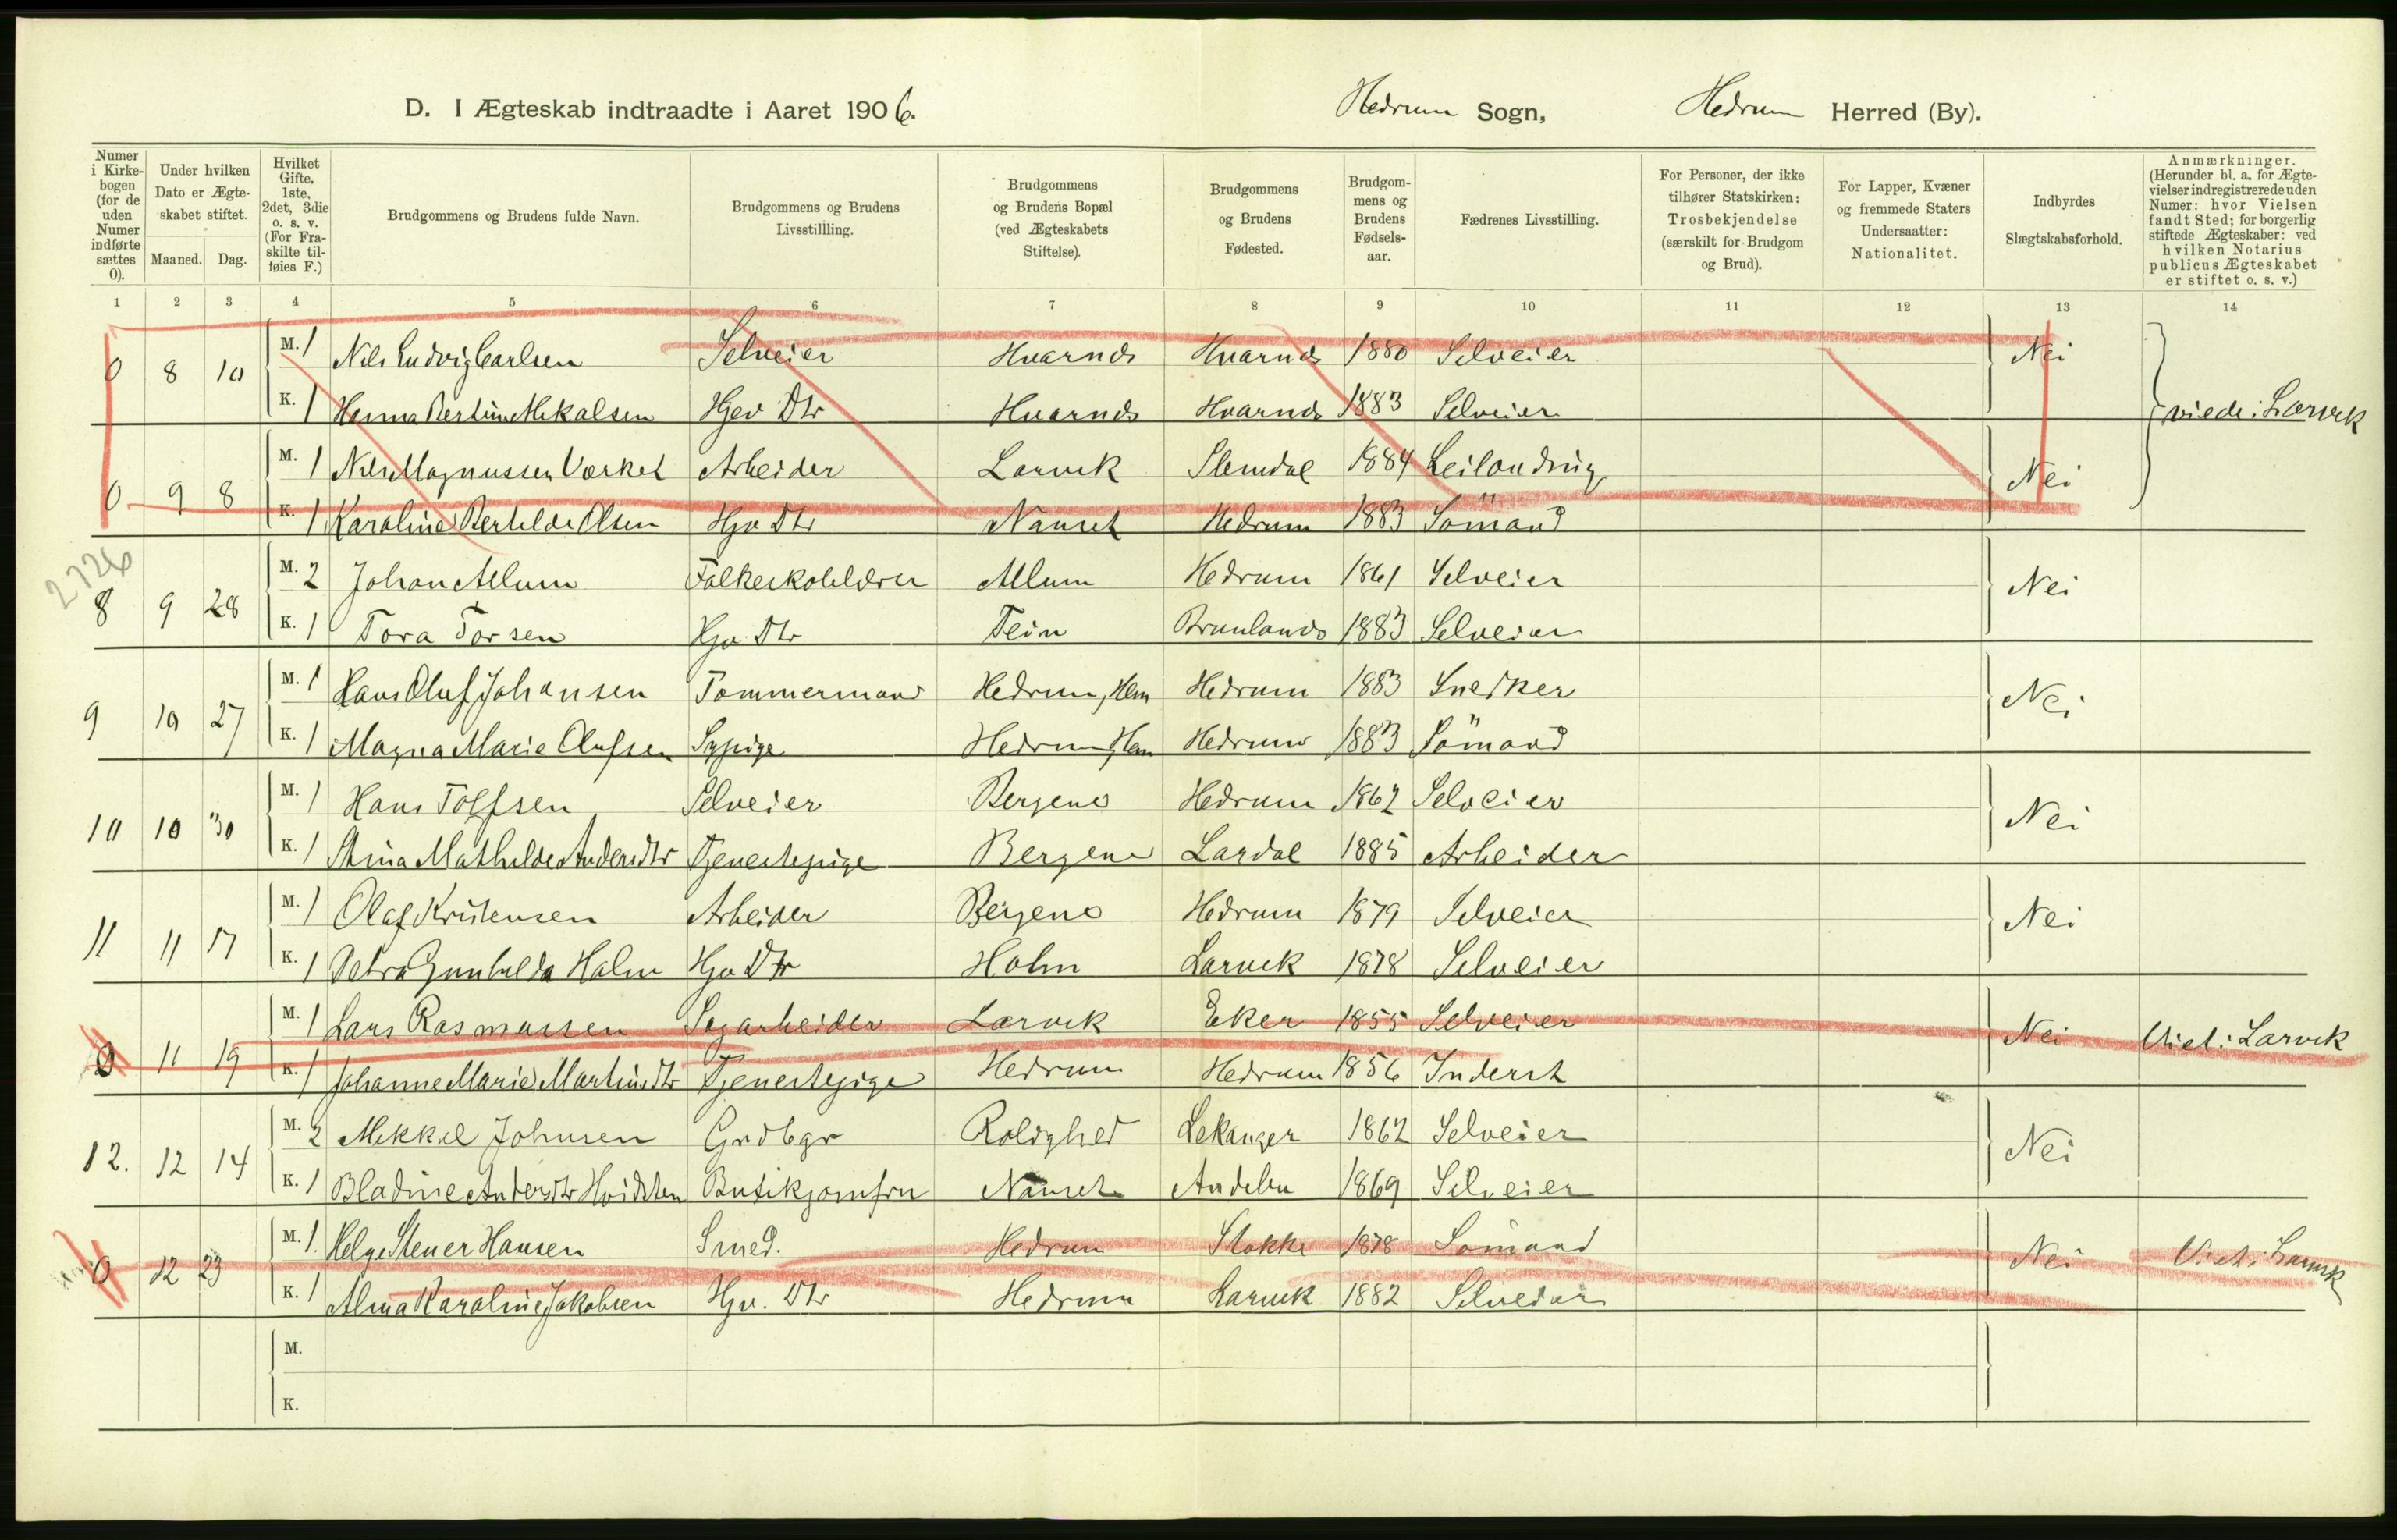 D. I Ægteskab indtraadte i Aaret 1906. Hedrum Sogn, Hedrum Herred (By).
Numer i Kirkebogen (for de uden Numer indførte sættes 0).
Under hvilken Dato er Ægteskabet stiftet.
Maaned. Dag.
Hvilket Gifte. 1ste, 2det, 3die o. s. v. (For Fraskilte tilføies F.)
Brudgommens og Brudens fulde Navn.
Brudgommens og Brudens Livsstillling.
Brudgommens og Brudens Bopæl (ved Ægteskabets Stiftelse).
Brudgommens og Brudens Fødested.
Brudgommens og Brudens Fødselsaar.
Fædrenes Livsstilling.
For Personer, der ikke tilhører Statskirken: Trosbekjendelse (særskilt for Brudgom og Brud).
For Lapper, Kvæner og fremmede Staters Undersaatter: Nationalitet.
Indbyrdes Slægtskabsforhold.
Anmærkninger. (Herunder bl. a. for Ægtevielser indregistrerede uden Numer: hvor Vielsen fandt Sted; for borgerlig stiftede Ægteskaber: ved hvilken Notarius publicus Ægteskabet er stiftet o. s. v.)
1 2 3 4 5 6 7 8 9 10 11 12 13 14
0 8 10 M. 1 Nils Ludvig Carlsen Selveier Hvarnds Hvarnds 1880 Selveier Nei
K. 1 Bertine Mikalsen Hjev Dtr Hvarnds Hvarnds 1883 Selveier viede i Larvik
0 9 8 M. 1 Nils Magnussen Arbeider Larvik Slemdal 1884 Leilænding Nei
K. 1 Karoline Bertilde Olsen Hjv Dtr Nanset Hedrum 1883 Sömand
2726
8 9 28 M. 2 Johan Allum Folkeskolelærer Allum Hedrum 1861 Selveier Nei
K. 1 Tora Torsen Hjv. Dtr Tein Brunlands 1883 Selveier
9 10 27 M. 1 Hans Oluf Johansen Tommermand Hedrum, Hem Hedrum 1883 Snedker Nei
K. 1 Magna Marie Olufsen Sypige Hedrum Hem Hedrum 1883 Sömand
10 10 30 M. 1 Hans Tolfsen Selveier Bergene Hedrum 1862 Selveier Nei
K. 1 Stina Mathilde Andersdtr Tjenestepige Bergene Lardal 1885 Arbeider
11 11 17 M. 1 Olaf Kristensen Arbeider Bergene Hedrum 1879 Selveier Nei
K. 1 Petra Gunhilda Holm Hjv Dtr Holm Larvik 1878 Selveier
0 11 19 M. 1 Lars Rasmussen Sagarbeider Larvik Eker 1855 Selveier Nei Viet i Larvik
K. 1 Johanne Marie Martinsdtr Tjenestepige Hedrum Hedrum 1856 Inderst
12. 12 14 M. 2 Mikkel Johnsen Grdbgr Rolighed Lekanger 1862 Selveier Nei
K. 1 Bladine Andersdtr Hvidsten Butikjomfru Nanset Andebu 1869 Selveier
0 12 23 M. 1. Helge Stener Hansen Smed. Hedrum Stokke 1878 Sömand Nei Viet i Larvik
K. 1 Alma Karoline Jakobsen Hjv. Dtr Hedrum Larvik 1882 Selveier
M.
K.